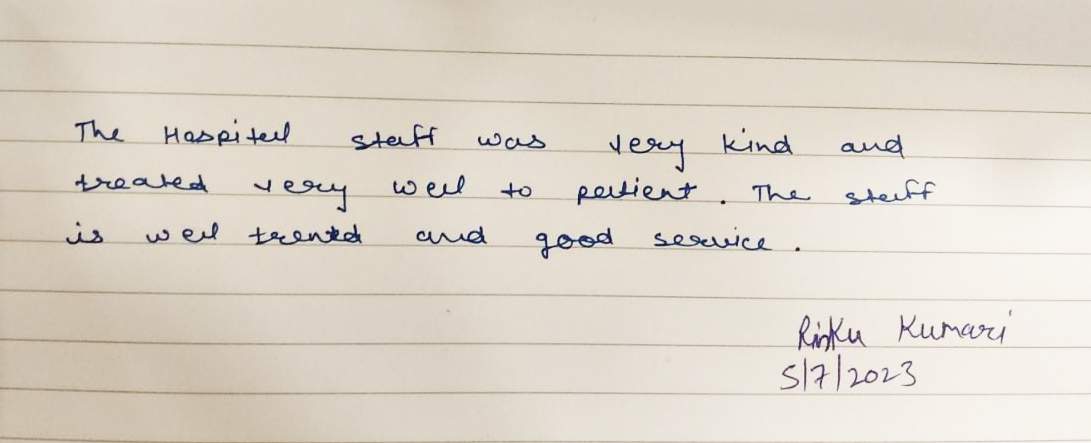 The Hospital staff was very kind and
treated very well to patient. The staff
is well trented and good service.
Rinku Kumari
5/7/2023